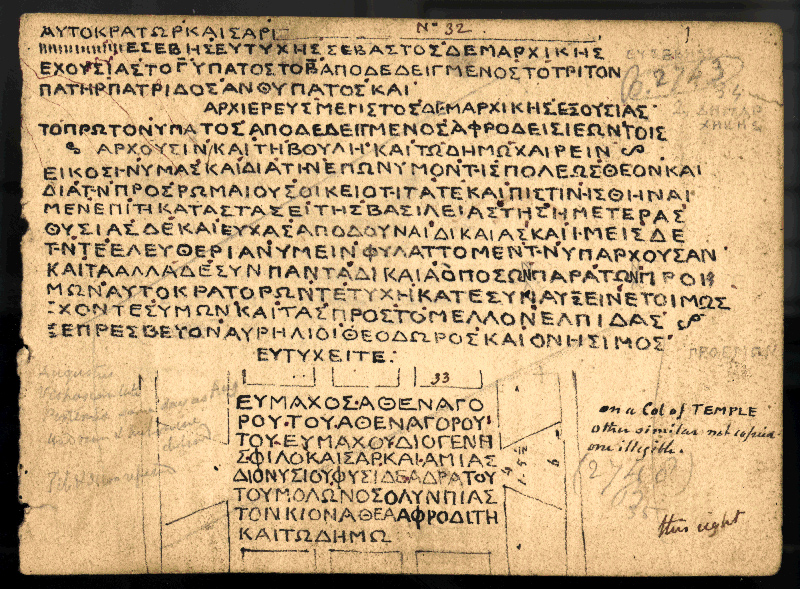 ΑΥΤΟΚΡΑΤΩΡΚΑΙΣΑΡΙ
Nº 32
1
ΕΣΕΒΗΣΕΥΤΥΧΗΣΣΕΒΑΣΤΟΣΔΕΜΑΡΧΙΚΗΣ
ΕΧΟΥΣΙΑΣΤΟΓΥΠΑΤΟΣΤΟΒΑΠΟΔΕΔΕΙΓΜΕΝΟΣΤΟΤΡΙΤΟΝ
ΠΑΤΗΡΠΑΤΡΙΔΟΣΑΝΘΥΠΑΤΟΣΚΑΙ
ΑΡΧΙΕΡΕΥΣΜΕΓΙΣΤΟΣΔΕΜΑΡΧΙΚΗΣΕΞΟΥΣΙΑΣ
ΤΟΠΡΩΤΟΝΥΠΑΤΟΣΑΠΟΔΕΔΕΙΓΜΕΝΟΣΑΦΡΟΔΕΙΣΙΕΩΝΤΟΙΣ
ΑΡΧΟΥΣΙΝΚΑΙΤΗΒΟΥΛΗΚΑΙΤΩΔΗΜΩΧΑΙΡΕΙΝ
ΕΙΚΟΣΗΝΥΜΑΣΚΑΙΔΙΑΤΗΝΕΠΩΝΥΜΟΝΤΗΣΠΟΛΕΩΣΘΕΟΝΚΑΙ
ΔΙΑΤΗΝΠΡΟΣΡΩΜΑΙΟΥΣΟΙΚΕΙΟΤΗΤΑΤΕΚΑΙΠΙΣΤΙΝΗΣΘΗΝΑΙ
ΜΕΝΕΠΙΤΗΚΑΤΑΣΤΑΣΕΙΤΗΣΒΑΣΙΛΕΙΑΣΤΗΣΗΜΕΤΕΡΑΣ
ΘΥΣΙΑΣΔΕΚΑΙΕΥΧΑΣΑΠΟΔΟΥΝΑΙΔΙΚΑΙΑΣΚΑΙΗΜΕΙΣΔΕ
ΤΗΝΤΕΕΛΕΥΘΕΡΙΑΝΥΜΕΙΝΦΥΛΑΤΤΟΜΕΝΤΗΝΥΠΑΡΧΟΥΣΑΝ
ΚΑΙΤΑΑΛΛΑΔΕΣΥΝΠΑΝΤΑΔΙΚΑΙΑΟΠΟΣΩΝΠΑΡΑΤΩΝΠΡΟΗ
ΜΩΝΑΥΤΟΚΡΑΤΟΡΩΝΤΕΤΥΧΗΚΑΤΕΣΥΝΑΥΞΕΙΝΕΤΟΙΜΩΣ
ΕΧΟΝΤΕΣΥΜΩΝΚΑΙΤΑΣΠΡΟΣΤΟΜΕΛΛΟΝΕΛΠΙΔΑΣ
ΕΠΡΕΣΒΕΥΟΝΑΥΡΗΛΙΟΙΘΕΟΔΩΡΟΣΚΑΙΟΝΗΣΙΜΟΣ
ΕΥΤΥΧΕΙΤΕ
33
ΕΥΜΑΧΟΣΑΘΕΝΑΓΟ
ΡΟΥΤΟΥΑΘΕΝΑΓΟΡΟΥΤ
ΤΟΥΕΥΜΑΧΟΥΔΙΟΓΕΝΗ
ΣΦΙΛΟΚΑΙΣΑΡΚΑΙΑΜΙΑΣ
ΔΙΟΝΥΣΙΟΥΦΥΣΙΔΕΑΔΡΑΤΟΥ
ΤΟΥΜΟΛΩΝΟΣΟΛΥΝΠΙΑΣ
ΤΟΝΚΙΟΝΑΘΕΑΑΦΡΟΔΙΤΗ
ΚΑΙΤΩΔΗΜΩ
on a Col of TEMPLE
other similar not copied
one illegible.
2748
this right
2743